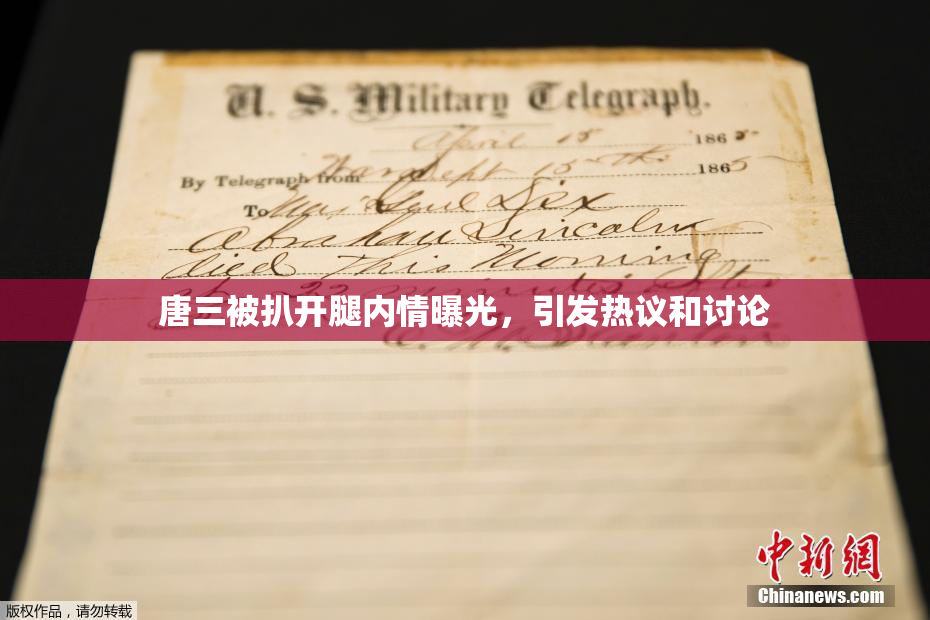 U. S. Military Telegraph.
April 15 1865
By Telegraph from War Dept 15th 1865
To Maj Genl Dix
Abraham Lincoln
died This Morning
at 22 minutes after
唐三被扒开腿内情曝光，引发热议和讨论
E. M. Stanton
中新网
Chinanews.com
版权作品，请勿转载